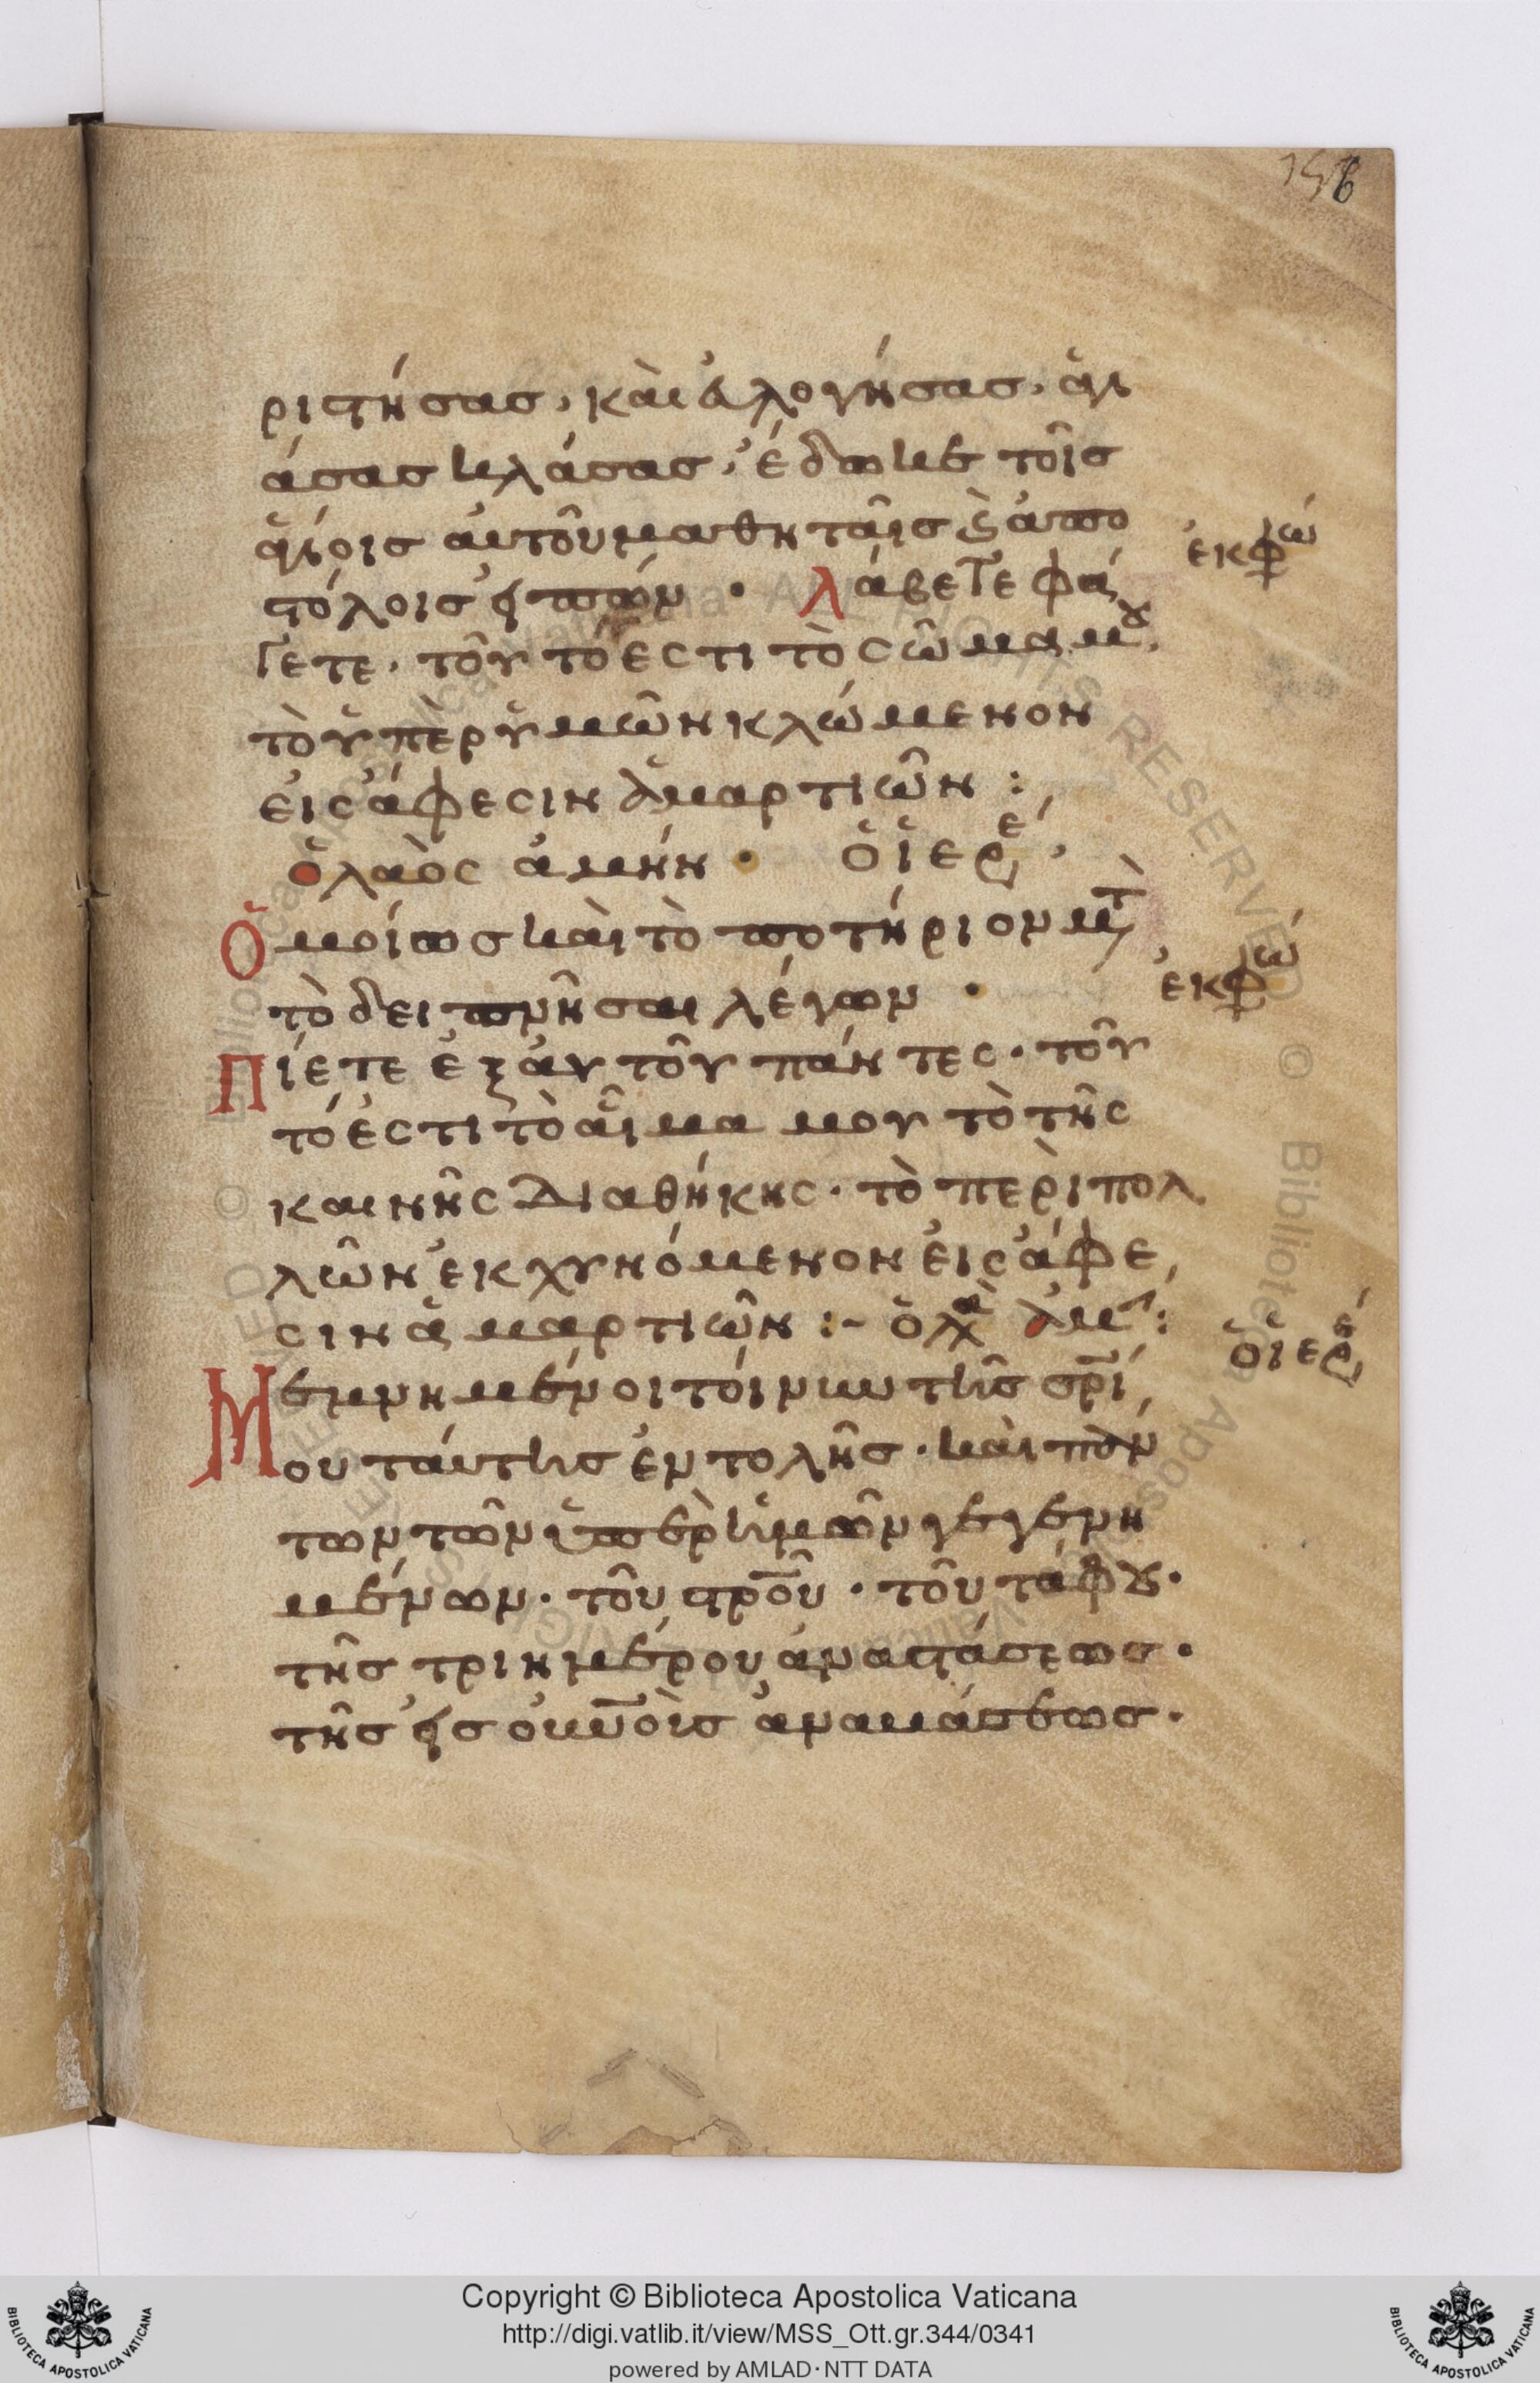 156
ριστήσας, καὶ εὐλογήσας, ἁγι
άσας κλάσας, ἔδωκε τοῖς
ἁγίοις αὐτοῦ μαθηταῖς ϗ ἀπο
στόλοις εἰπών · Λάβετε φά
ἐκφώ
γετε · τοῦτό ἐστι τὸ σῶμα μου,
τὸ ὑπὲρ ὑμῶν κλώμενον
εἰς ἄφεσιν ἁμαρτιῶν :
ὁ λαὸς ἀμήν · ὁ ἱερέ,
Ὁμοίως καὶ τὸ ποτήριον μετὰ
τὸ δειπνῆσαι λέγων ·
ἐκφώ
Πίετε ἐξ αὐτοῦ πάντες · τοῦ
τό ἐστι τὸ αἷμα μου τὸ τῆς
καινῆς διαθήκης · τὸ περὶ πολ
λῶν ἐκχυνόμενον εἰς ἄφε,
σιν ἁμαρτιῶν :- ὁ λα ἀμ :
ὁ ἱερέ
Μεμνημένοι τοίνυν τῆς σρι,
ου ταύτης ἐντολῆς · καὶ πάν
των τῶν ὑπὲρ ἡμῶν γεγενη
μένων · τοῦ στροῦ · τοῦ τάφου ·
τῆς τριημέρου ἀναστάσεως ·
τῆς εἰς οὐνοὺς ἀναβάσεως ·
Copyright © Biblioteca Apostolica Vaticana
http://digi.vatlib.it/view/MSS_Ott.gr.344/0341
powered by AMLAD·NTT DATA
BIBLIOTECA APOSTOLICA VATICANA
BIBLIOTECA APOSTOLICA VATICANA